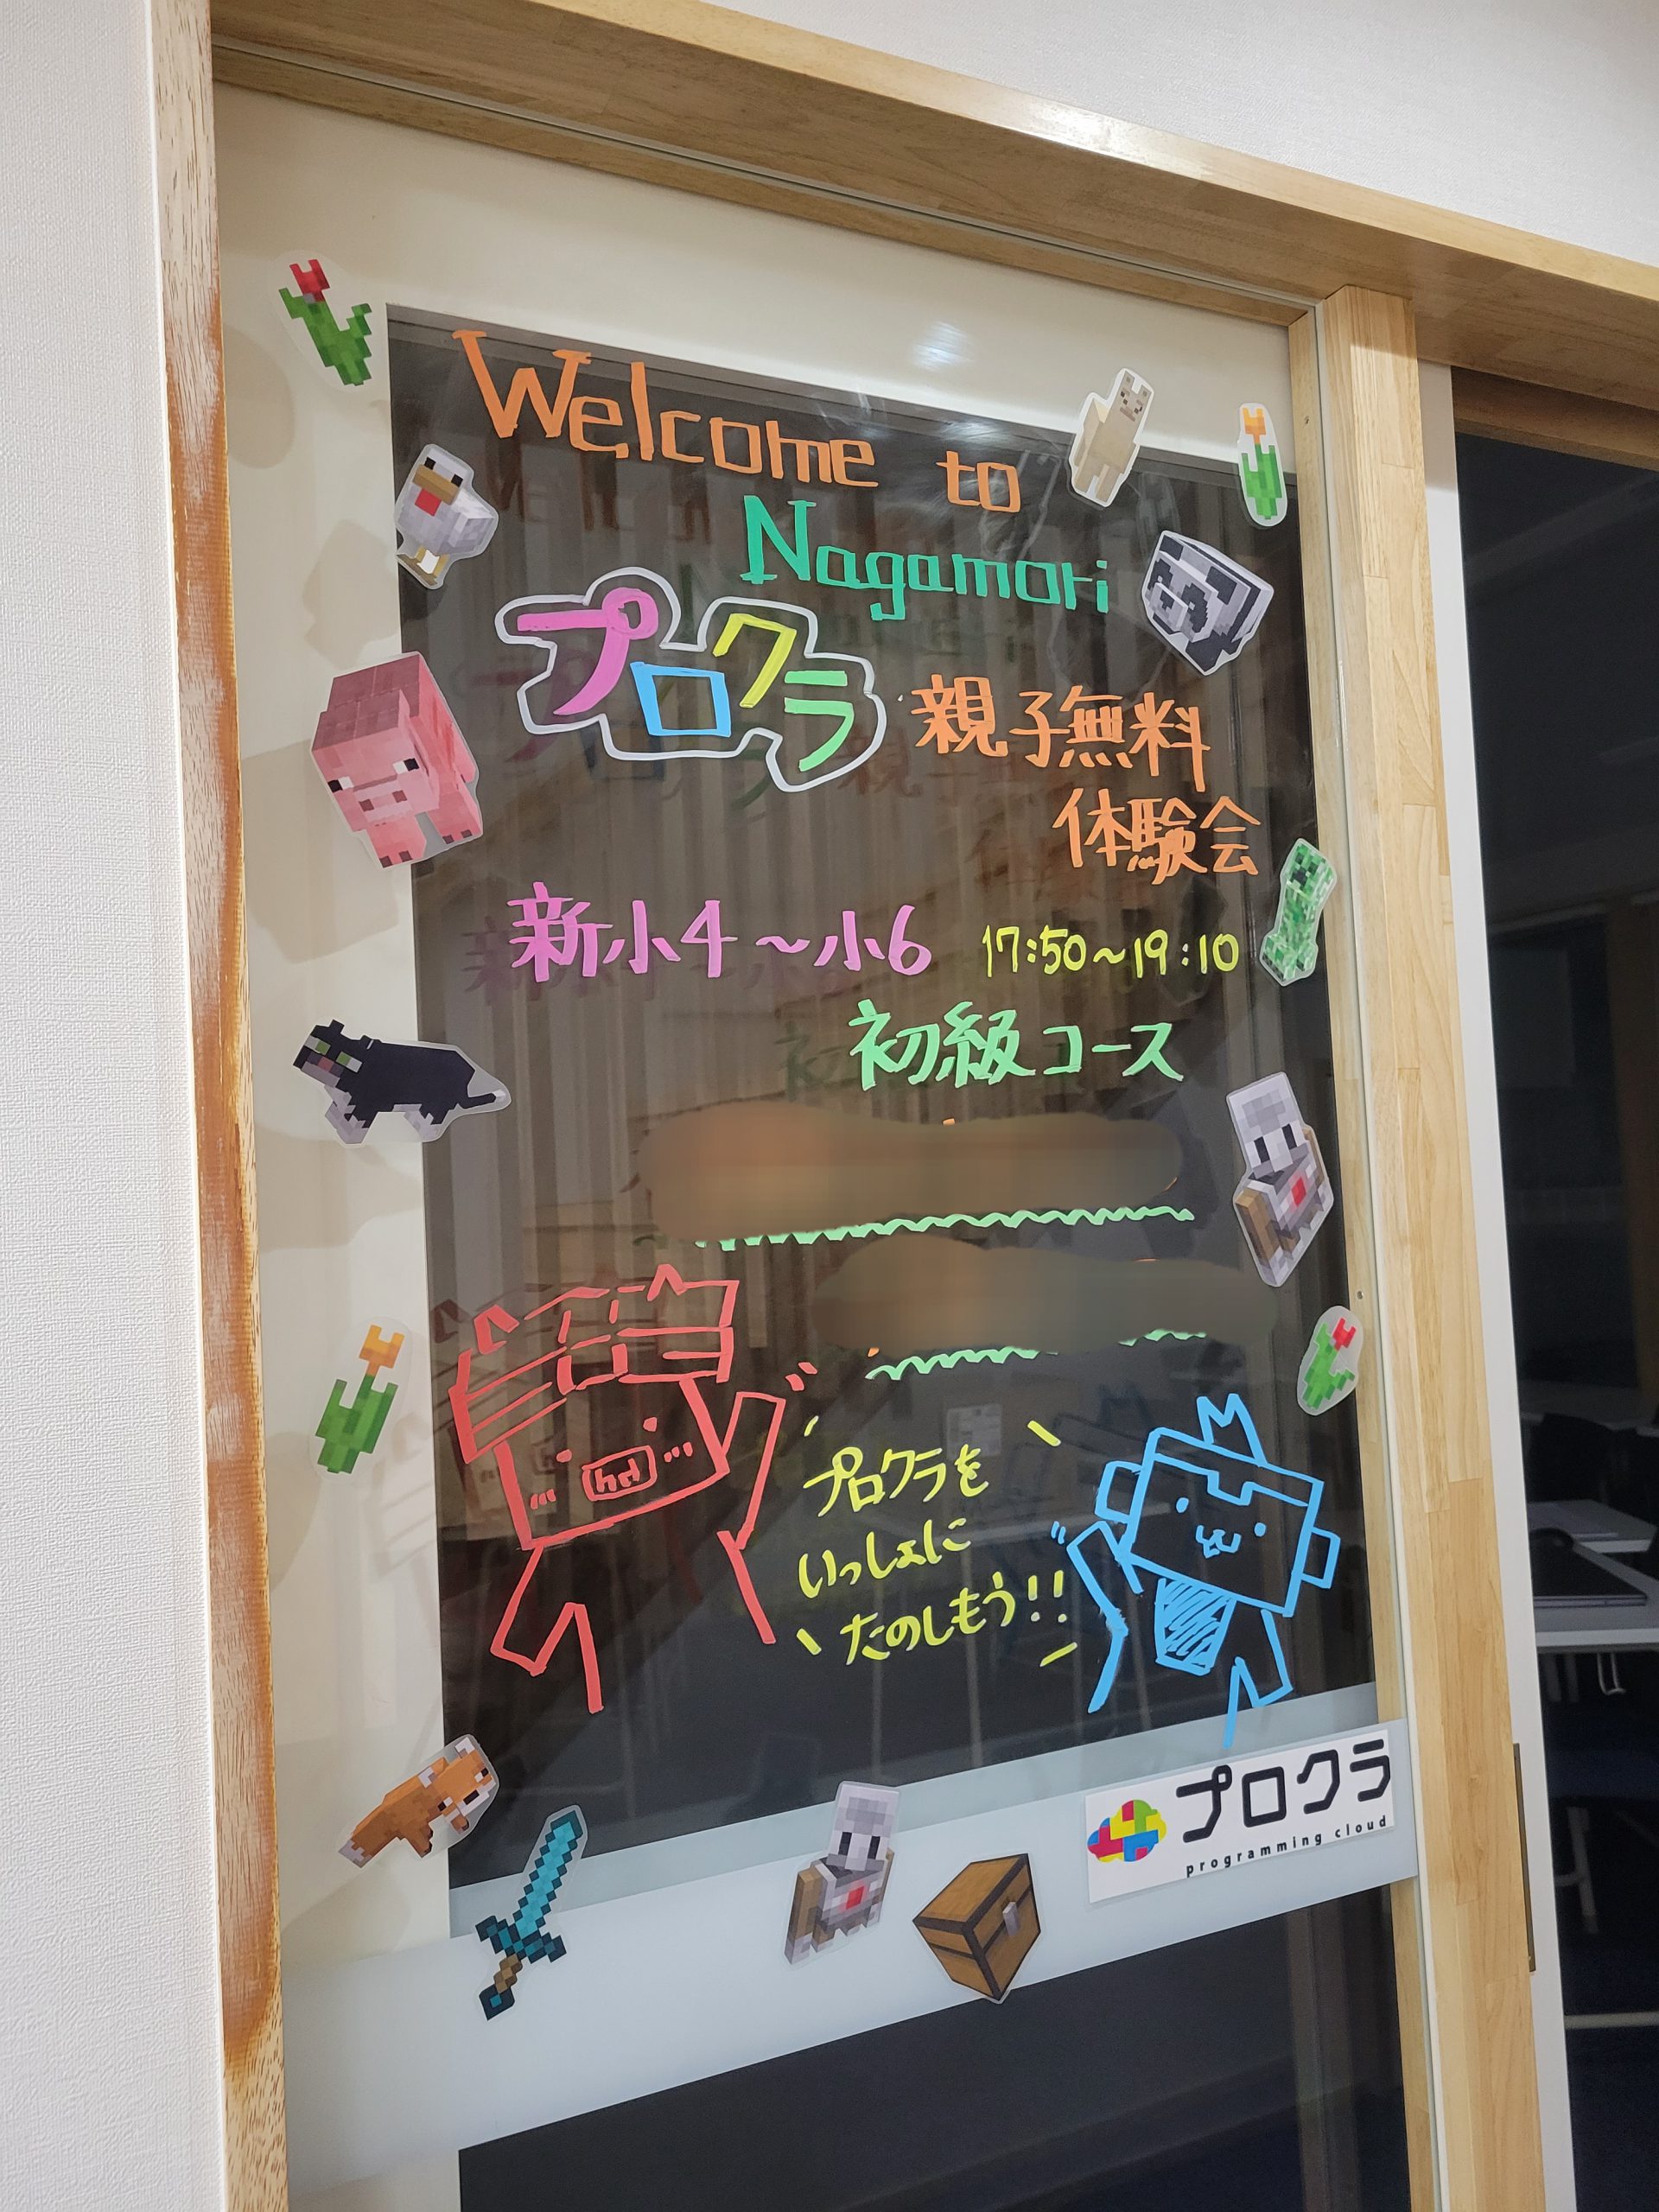 Welcome to
Nagamori
プロクラ 親子無料
体験会
新小4～小6 17:50～19:10
初級コース
hd
プロクラを
いっしょに
たのしもう!!
プロクラ
programming cloud